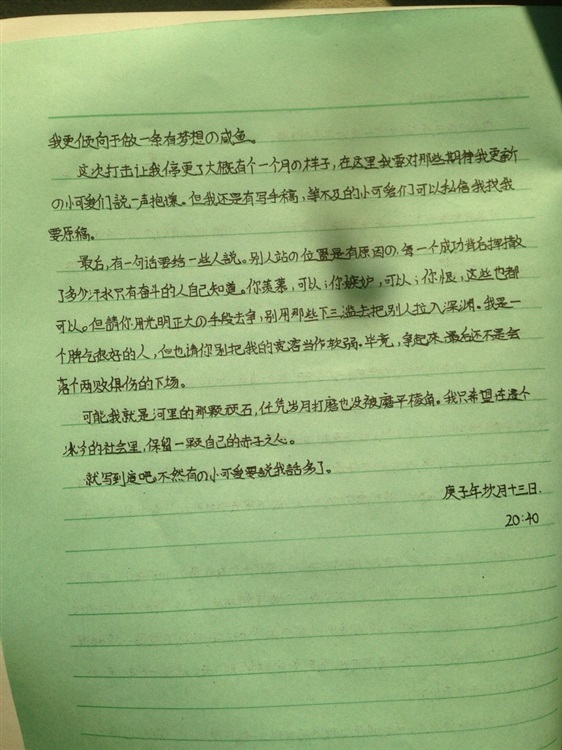 我更倾向于做一条有梦想の咸鱼。
这次打击让我停更了大概有个一个月の样子，在这里我要对那些期待我更新
の小可爱们説一声抱歉。但我还是有写手稿，等不及的小可爱们可以私信我找我
要原稿。
最后，有一句话要给一些人説。别人站の位置是有原因の，每一个成功背后挥撒
了多少汗水只有奋斗的人自己知道。你羡慕，可以；你嫉妒，可以；你恨，这些也都
可以。但請你用光明正大の手段去争，别用那些下三滥去把别人拉入深渊。我是一
个脾气很好的人，但也請你别把我的宽容当作软弱。毕竟，争起来最后还不是会
落个两败俱伤の下场。
可能我就是河里の那颗顽石，任凭岁月打磨也没被磨平棱角。我只希望在這个
冰冷的社会里，保留一颗自己的赤子之心。
就写到這吧，不然有の小可爱要説我話多了。
庚子年坎月十三日.
20:40